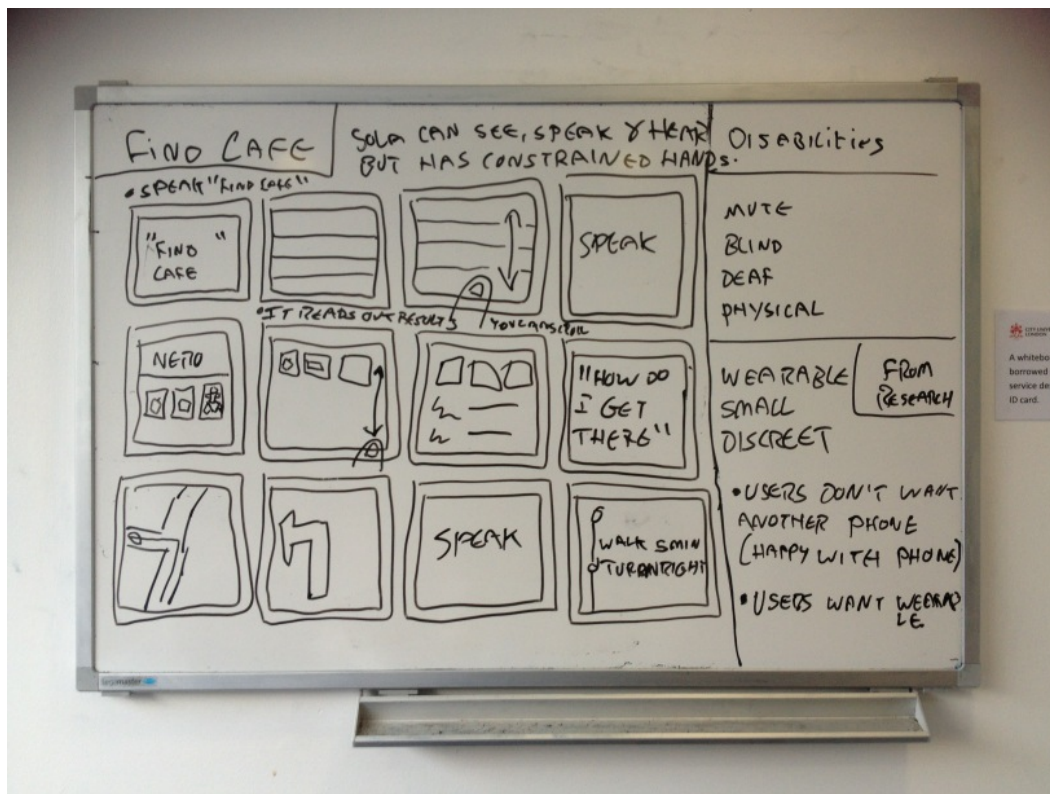 FIND CAFE
SOLA CAN SEE, SPEAK & HEAR
BUT HAS CONSTRAINED HANDS.
• SPEAK "FIND CAFE"
"FIND "
CAFE
SPEAK
• IT READS OUT RESULTS
YOU CAN SCROLL
NERO
"HOW DO
I GET
THERE"
SPEAK
WALK 5MIN
TURN RIGHT
DISABILITIES
MUTE
BLIND
DEAF
PHYSICAL
WEARABLE
SMALL
DISCREET
FROM
RESEARCH
• USERS DON'T WANT
ANOTHER PHONE
(HAPPY WITH PHONE)
• USERS WANT WEARAB
LE
legamaster
CITY UNIVERSITY
LONDON
A whitebo
borrowed
service de
ID card.